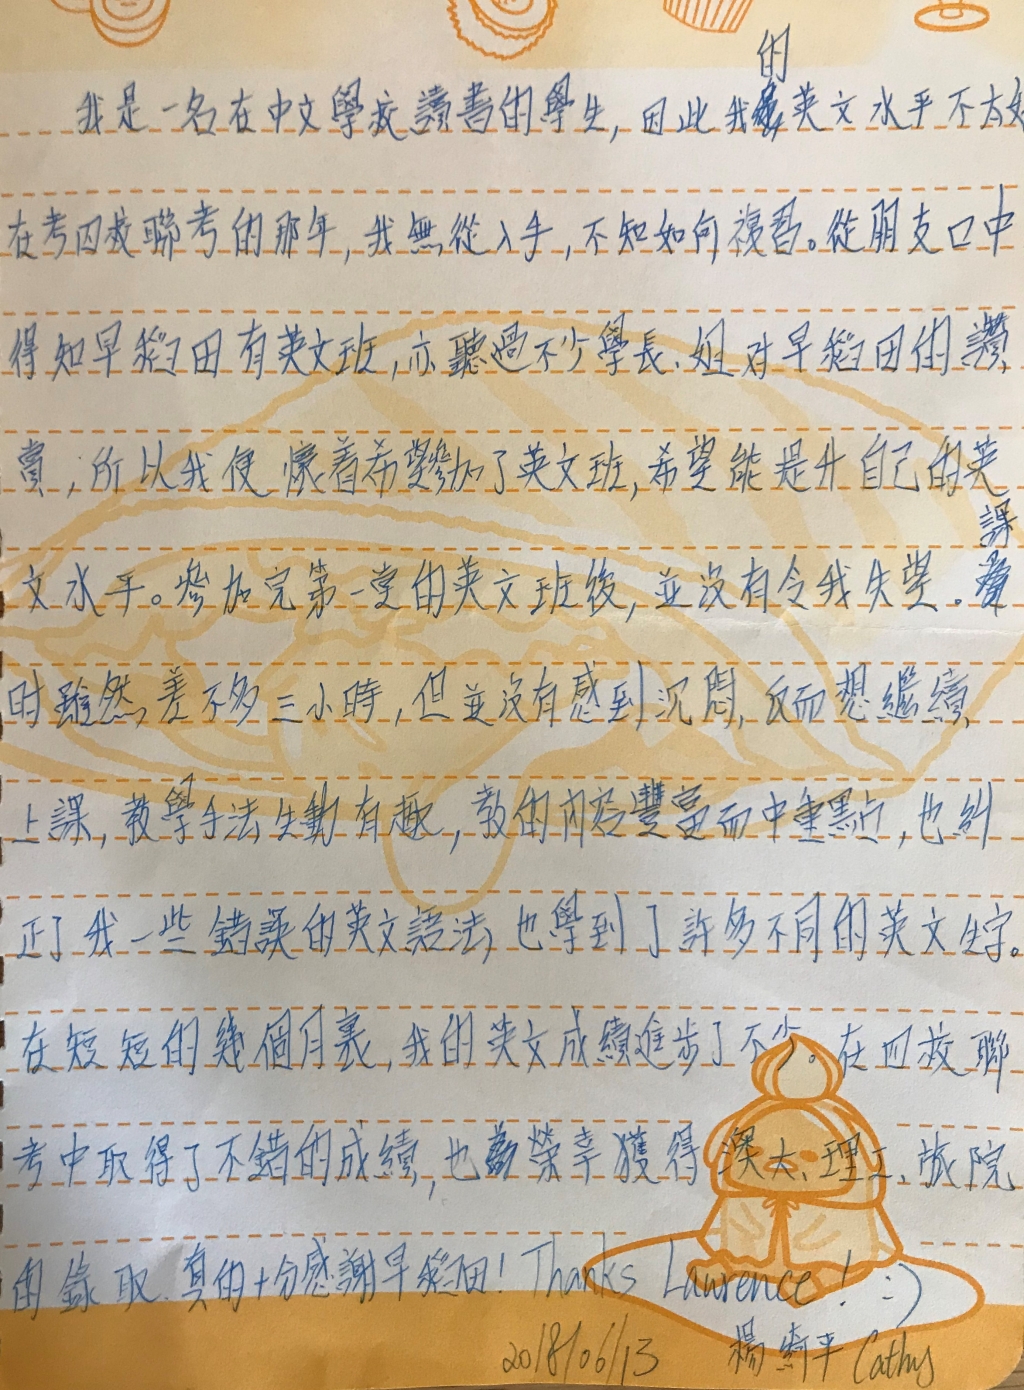 我是一名在中文學校讀書的學生,因此我的英文水平不太好
在考四校聯考的那年,我無從入手,不知如何複習。從朋友口中
得知早稻田有英文班,亦聽過不少學長、姐對早稻田的讚
賞,所以我便懷着希望參加了英文班,希望能提升自己的英
文水平。參加完第一堂的英文班後,並沒有令我失望。課
時雖然差不多三小時,但並沒有感到沉悶,反而想繼續
上課,教學手法生動有趣,教的內容豐富而中重點,也糾
正了我一些錯誤的英文語法,也學到了許多不同的英文生字。
在短短的幾個月裏,我的英文成績進步了不少。在四校聯
考中取得了不錯的成績,也榮幸獲得澳大、理工、旅院
的錄取.真的十分感謝早稻田! Thanks Lawrence! :)
2018/06/13 楊 平 Cathy